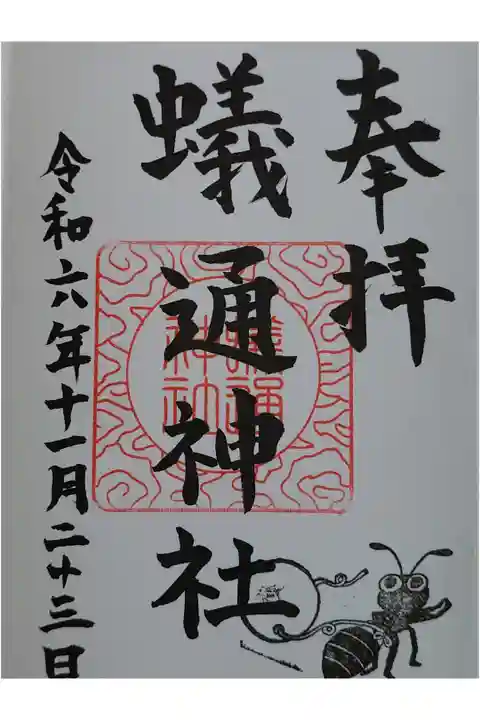 奉拝
蟻通神社
蟻通
神社
令和六年十一月二十三日